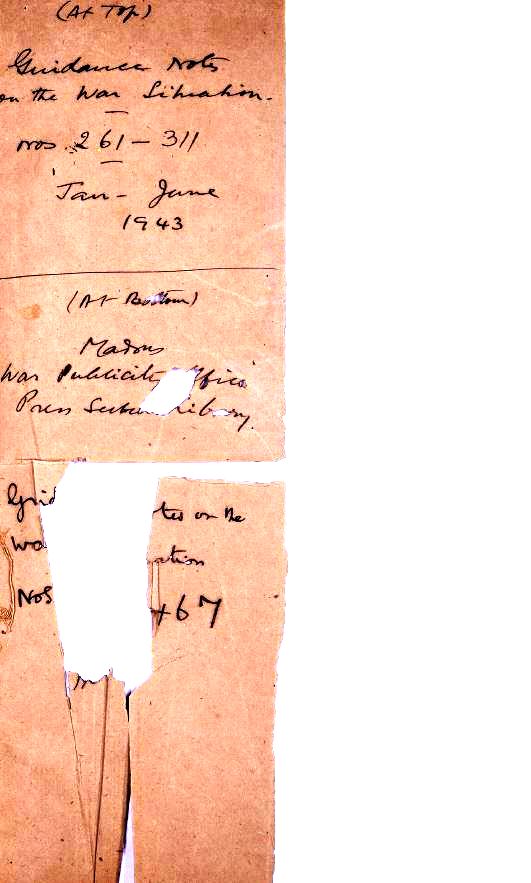 (At Top)
Guidance Notes
on the War Situation.
Nos. 261 — 311
Jan - June
1943
(At Bottom)
Madras
War Publicity Office
Press Section Library.
Guid tes on the
Wa ation
Nos 467